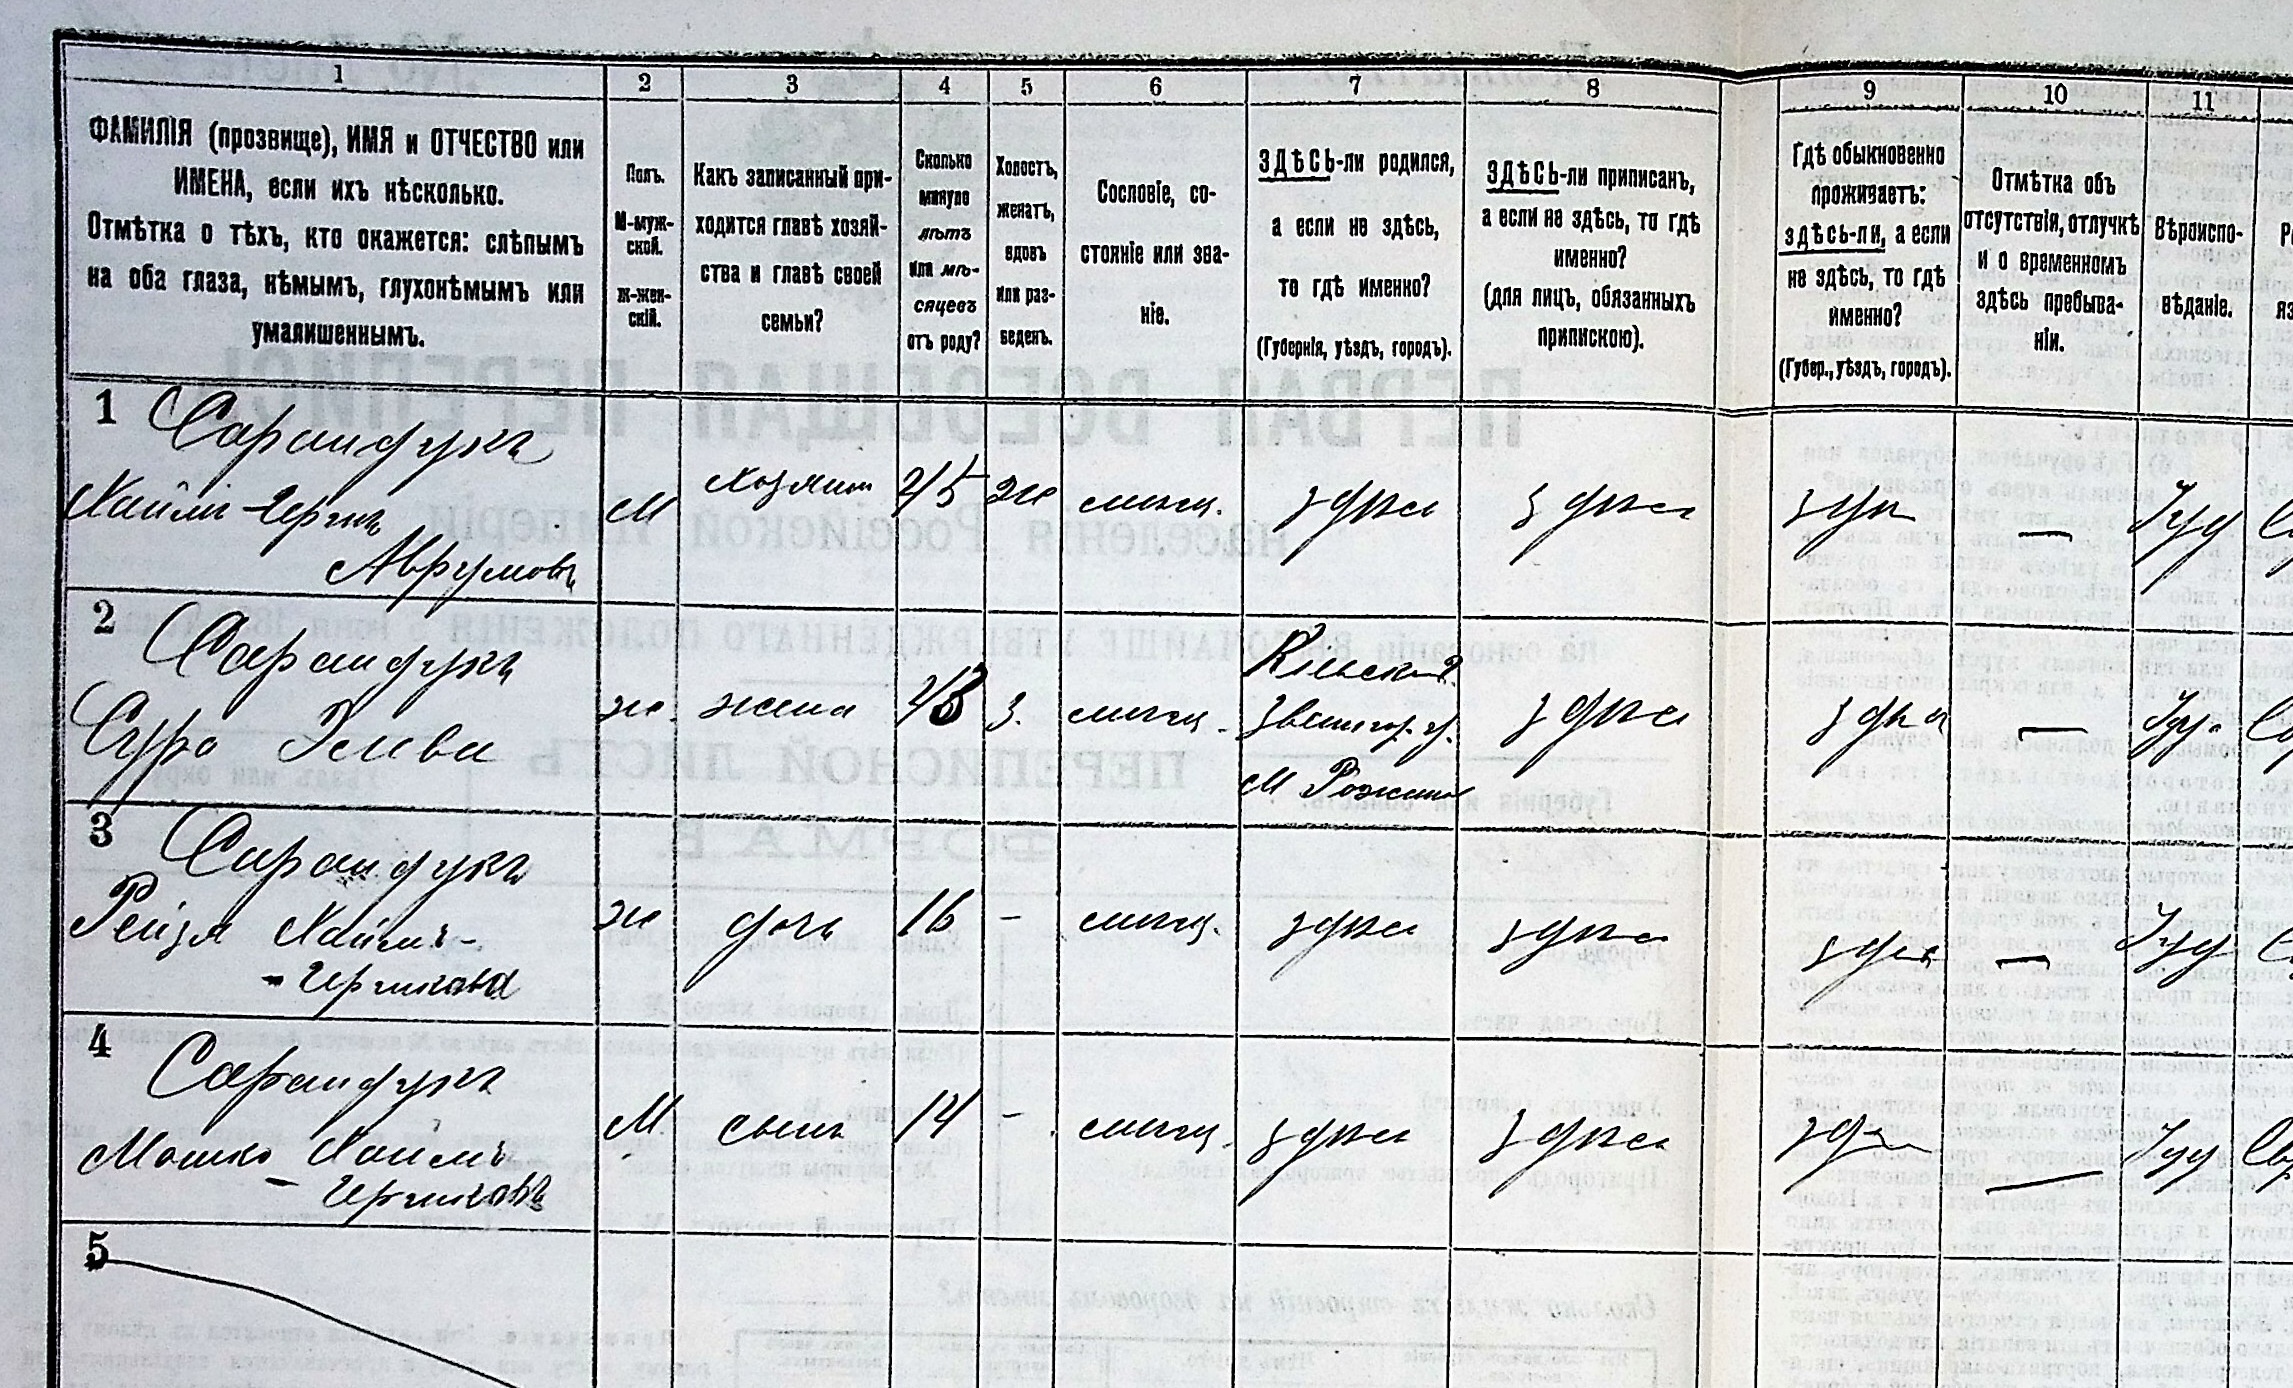 1 2 3 4 5 6 7 8 9 10 11
ФАМИЛІЯ (прозвище), ИМЯ и ОТЧЕСТВО или
ИМЕНА, если ихъ нѣсколько.
Отмѣтка о тѣхъ, кто окажется: слѣпымъ
на оба глаза, нѣмымъ, глухонѣмымъ или
умалишеннымъ.
Полъ.
М-муж-
ской.
ж-жен-
скій.
Какъ записанный при-
ходится главѣ хозяй-
ства и главѣ своей
семьи?
Сколько
минуло
лѣтъ
или мѣ-
сяцевъ
отъ роду?
Холостъ,
женатъ,
вдовъ
или раз-
веденъ.
Сословіе, со-
стояніе или зва-
ніе.
ЗДѢСЬ-ли родился,
а если не здѣсь,
то гдѣ именно?
(Губернія, уѣздъ, городъ).
ЗДѢСЬ-ли приписанъ,
а если не здѣсь, то гдѣ
именно?
(для лицъ, обязанныхъ
припискою).
Гдѣ обыкновенно
проживаетъ:
здѣсь-ли, а если
не здѣсь, то гдѣ
именно?
(Губер., уѣздъ, городъ).
Отмѣтка объ
отсутствіи, отлучкѣ
и о временномъ
здѣсь пребыва-
ніи.
Вѣроиспо-
вѣданіе.
1 Сарандукъ
Хаимъ-Гершъ
Аврумовъ
М хозяин 45 ж мѣщ. здѣсь здѣсь здѣ — Іуд
2 Сарандукъ
Сура
ж. жена 43 з. мѣщ. Кіевск. г.
Звенигор. у.
М
здѣсь здѣсь — Іуд.
3 Сарандукъ
Рейзя Хаимъ-
-Гершкова
ж дочь 16 - мѣщ. здѣсь здѣсь здѣсь — Іуд
4 Сарандукъ
Мошко Хаимъ-
Гершковъ
М. сынъ 14 - мѣщ. здѣсь здѣсь здѣ — Іуд
5